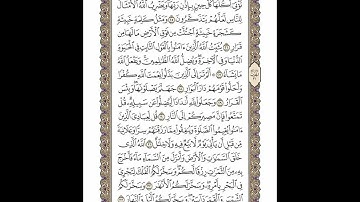 تُؤْتِي أُكُلَهَا كُلَّ حِينٍ بِإِذْنِ رَبِّهَا وَيَضْرِبُ اللَّهُ الْأَمْثَالَ
لِلنَّاسِ لَعَلَّهُمْ يَتَذَكَّرُونَ ٢٥ وَمَثَلُ كَلِمَةٍ خَبِيثَةٍ
كَشَجَرَةٍ خَبِيثَةٍ اجْتُثَّتْ مِن فَوْقِ الْأَرْضِ مَا لَهَا مِن
قَرَارٍ ٢٦ يُثَبِّتُ اللَّهُ الَّذِينَ آمَنُوا بِالْقَوْلِ الثَّابِتِ فِي الْحَيَاةِ
الدُّنْيَا وَفِي الْآخِرَةِ وَيُضِلُّ اللَّهُ الظَّالِمِينَ وَيَفْعَلُ اللَّهُ
مَا يَشَاءُ ٢٧ أَلَمْ تَرَ إِلَى الَّذِينَ بَدَّلُوا نِعْمَتَ اللَّهِ كُفْرًا
وَأَحَلُّوا قَوْمَهُمْ دَارَ الْبَوَارِ ٢٨ جَهَنَّمَ يَصْلَوْنَهَا وَبِئْسَ
الْقَرَارُ ٢٩ وَجَعَلُوا لِلَّهِ أَندَادًا لِّيُضِلُّوا عَن سَبِيلِهِ قُلْ
تَمَتَّعُوا فَإِنَّ مَصِيرَكُمْ إِلَى النَّارِ ٣٠ قُل لِّعِبَادِيَ الَّذِينَ
آمَنُوا يُقِيمُوا الصَّلَاةَ وَيُنفِقُوا مِمَّا رَزَقْنَاهُمْ سِرًّا وَعَلَانِيَةً
مِّن قَبْلِ أَن يَأْتِيَ يَوْمٌ لَّا بَيْعٌ فِيهِ وَلَا خِلَالٌ ٣١ اللَّهُ الَّذِي
خَلَقَ السَّمَاوَاتِ وَالْأَرْضَ وَأَنزَلَ مِنَ السَّمَاءِ مَاءً فَأَخْرَجَ
بِهِ مِنَ الثَّمَرَاتِ رِزْقًا لَّكُمْ وَسَخَّرَ لَكُمُ الْفُلْكَ لِتَجْرِيَ
فِي الْبَحْرِ بِأَمْرِهِ وَسَخَّرَ لَكُمُ الْأَنْهَارَ ٣٢ وَسَخَّرَ لَكُمُ
الشَّمْسَ وَالْقَمَرَ دَائِبَيْنِ وَسَخَّرَ لَكُمُ اللَّيْلَ وَالنَّهَارَ